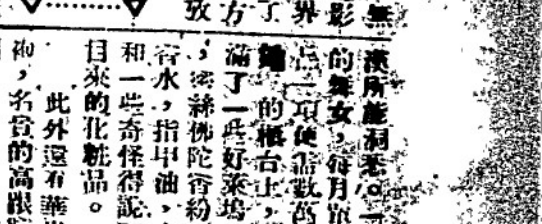 無
影
界
了
方
致
漢所能洞悉。
的舞女，每月
在一項便需數萬
的櫃台上，
滿了一些好萊塢
，蜜絲佛陀香粉
香水，指甲油，
和一些奇怪得說
目來的化粧品。
此外還有華
，名貴的高跟